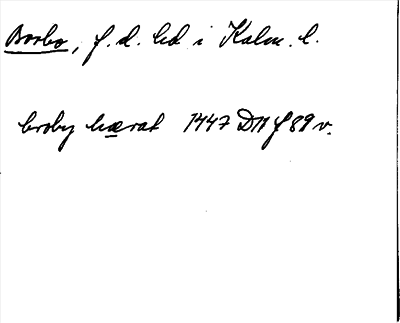 Borbo, f. d. hd i Kalm. l.
broby hærat 1447 DN f 89 v.